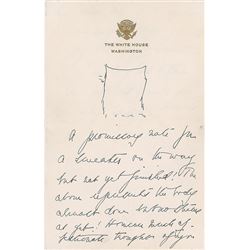 THE WHITE HOUSE
WASHINGTON
A promissory note for
a sweater on the way
but not yet finished. The
above represents the body
almost done but no
as yet! However much af-
fectionate thoughts